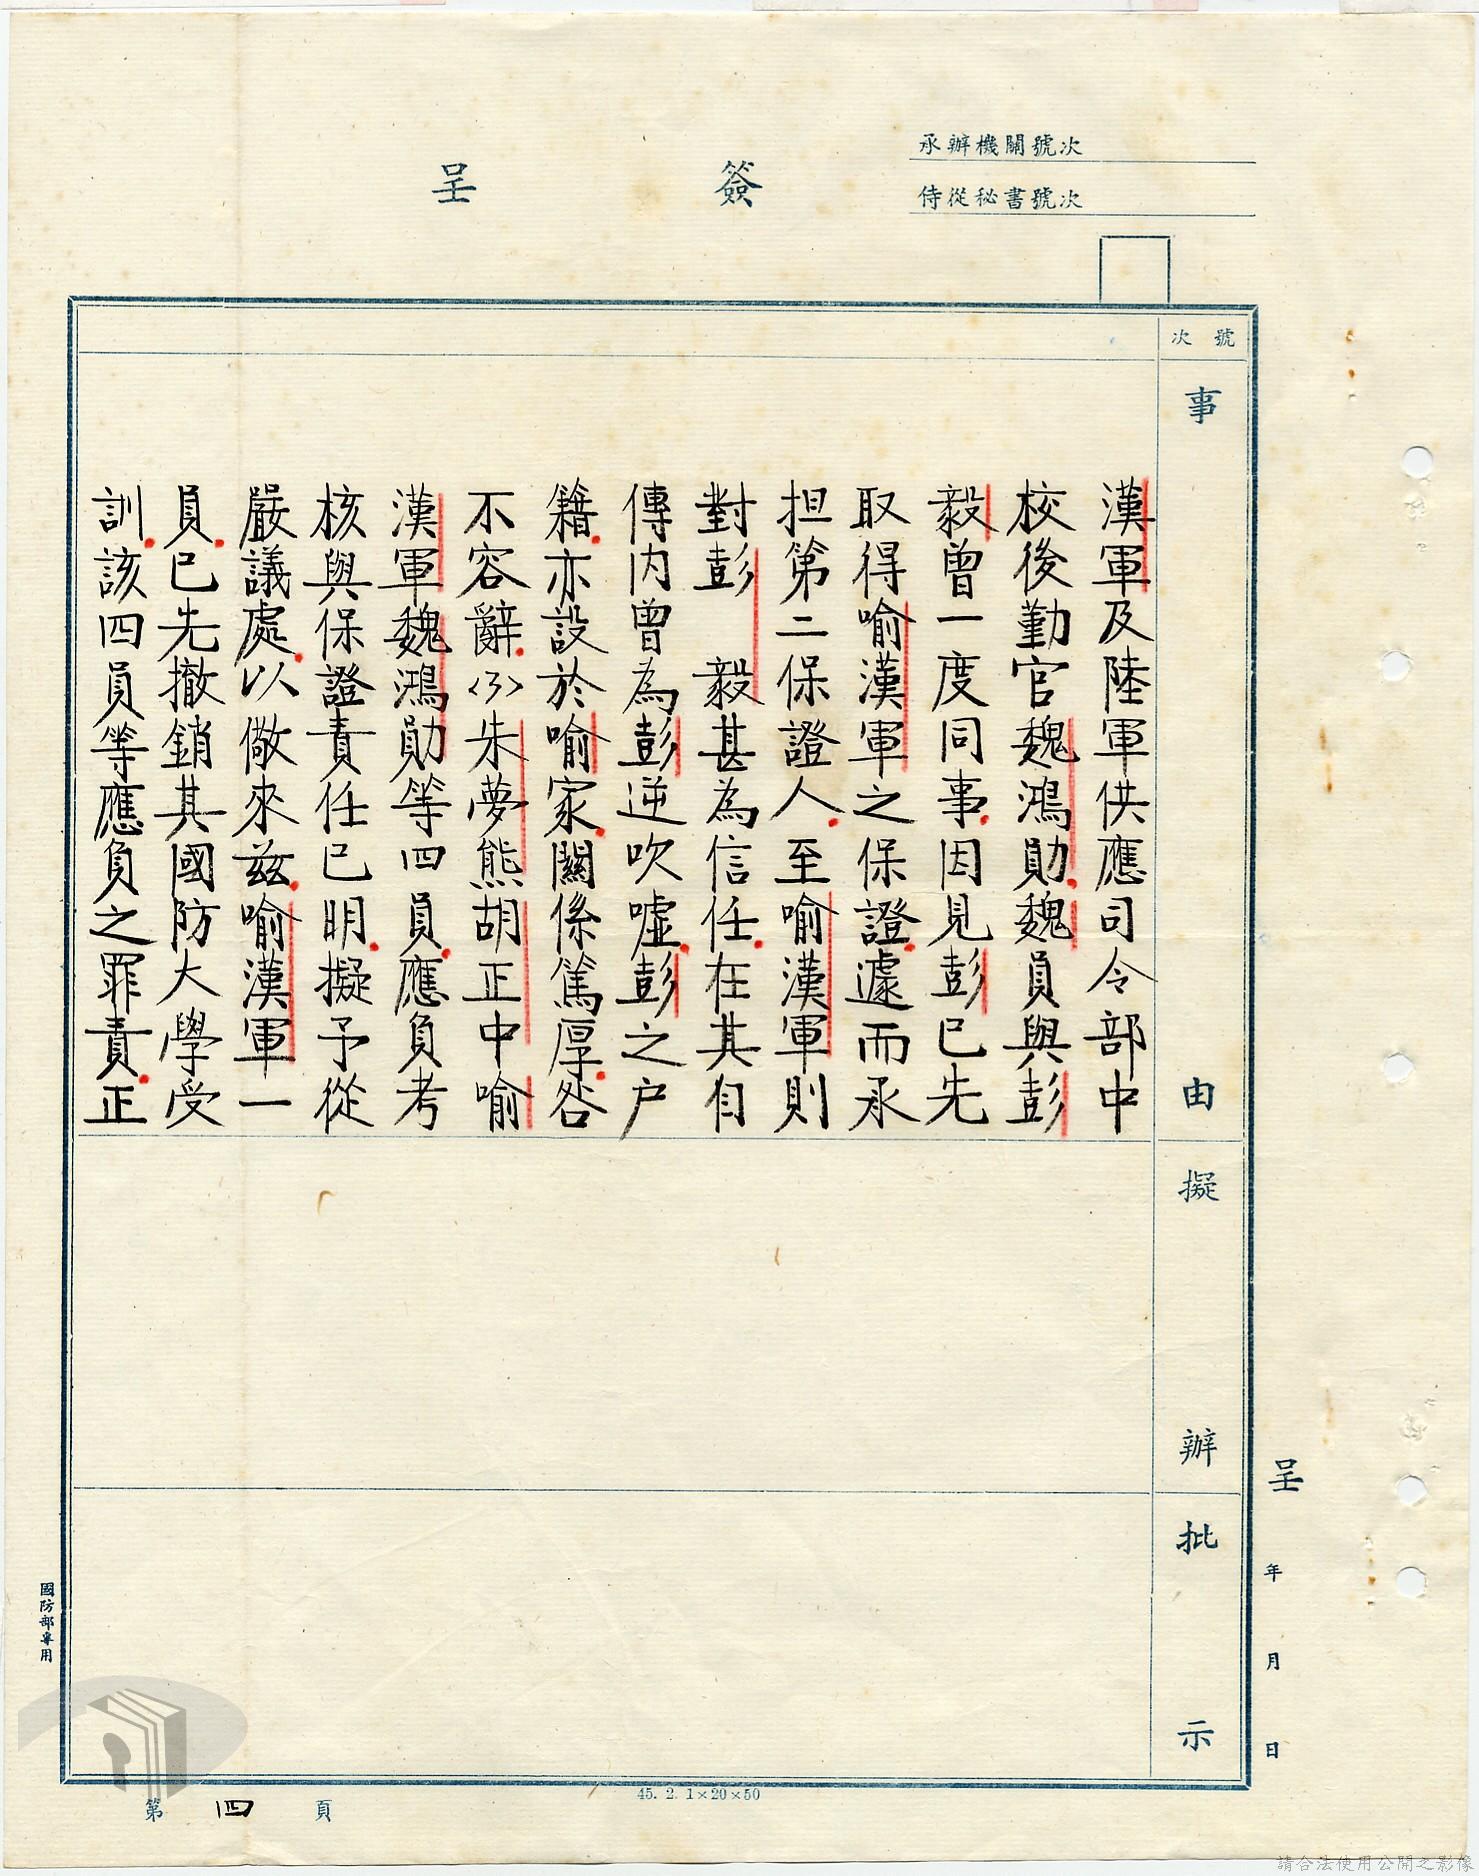 承辦機關號次
侍從秘書號次
簽呈
號次
事由
擬辦
批示
漢軍及陸軍供應司令部中
校後勤官魏鴻勛.魏員與彭
毅曾一度同事.因見彭已先
取得喻漢軍之保證.遽而承
担第二保證人.至喻漢軍則
對彭 毅甚為信任.在其自
傳內曾為彭逆吹噓.彭之户
籍.亦設於喻家.關係篤厚.咎
不容辭.〈3〉朱夢熊胡正中喻
漢軍魏鴻勛等四員.應負考
核與保證責任已明.擬予從
嚴議處.以儆來兹.喻漢軍一
員.已先撤銷其國防大學受
訓.該四員等應負之罪責.正
呈 年 月 日
國防部專用
45. 2. 1×20×50
第四頁
請合法使用公開之影像